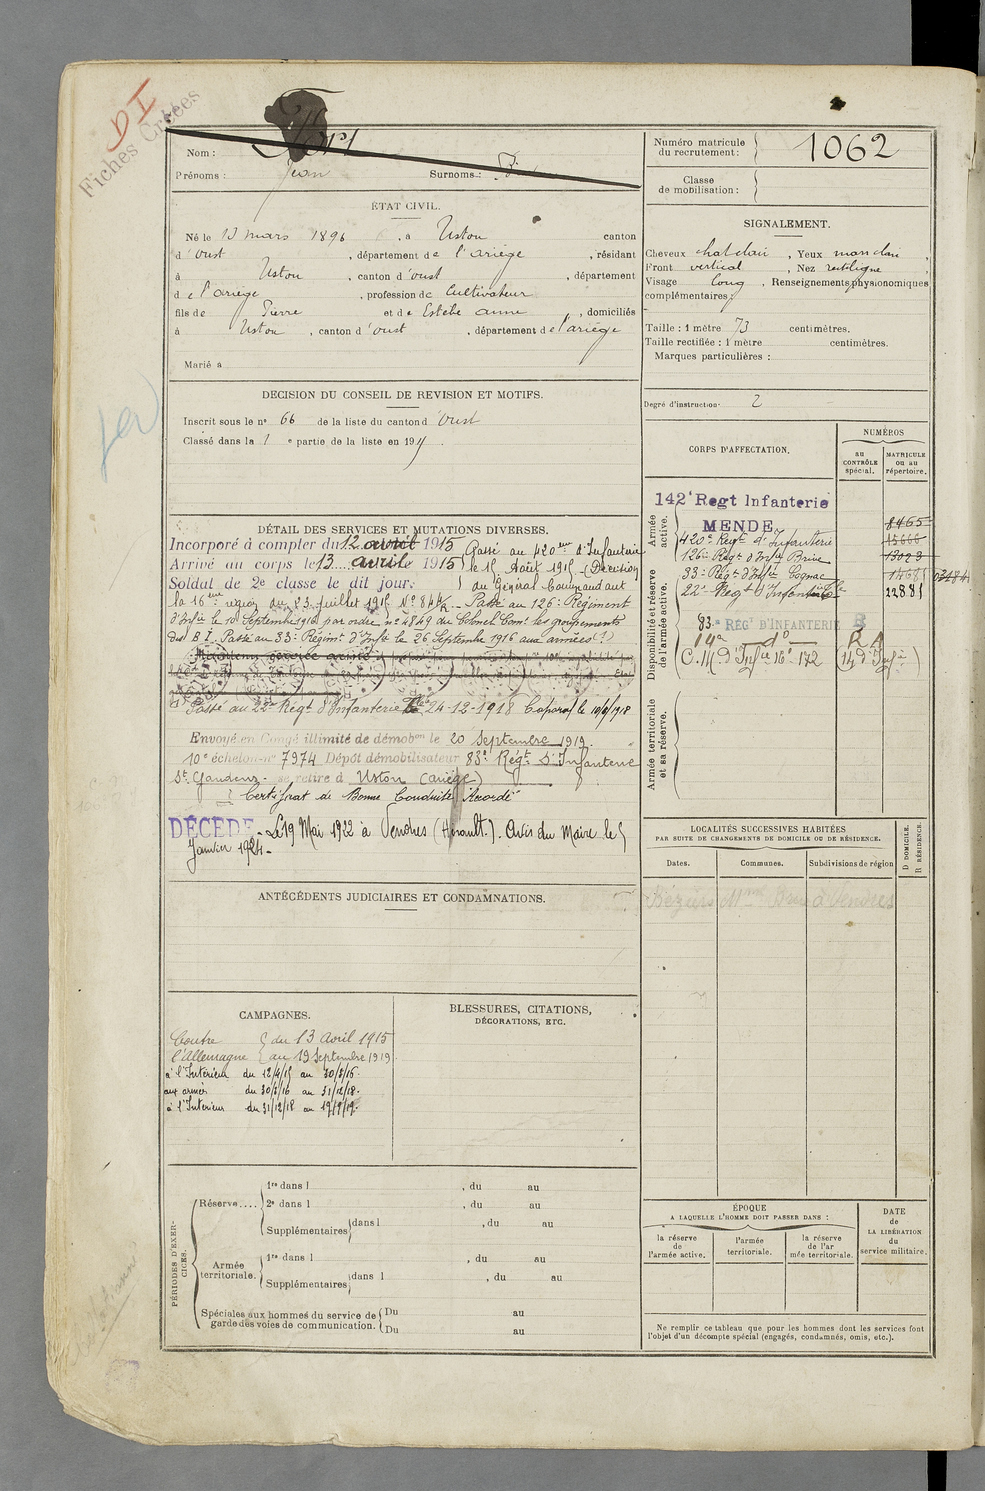 DI
Fiches Créées
Nom : Fort
Prénoms : Jean Surnoms :
Numéro matricule
du recrutement : 1062
Classe
de mobilisation :
ÉTAT CIVIL.
Né le 13 mars 1896, à Ustou canton
d'Oust, département de l'ariège, résidant
à Ustou, canton d'oust, département
de l'ariège, profession de Cultivateur
fils de Pierre et de Estèbe anne, domiciliés
à Ustou, canton d'oust, département de l'ariège
Marié à
SIGNALEMENT.
Cheveux chat clair, Yeux mar clair,
Front vertical, Nez rectiligne,
Visage long, Renseignements physionomiques
complémentaires :
Taille : 1 mètre 73 centimètres.
Taille rectifiée : 1 mètre centimètres.
Marques particulières :
Degré d'instruction : 2
DECISION DU CONSEIL DE REVISION ET MOTIFS.
Inscrit sous le no 66 de la liste du canton d'Oust
Classé dans la 1e partie de la liste en 1915.
CORPS D'AFFECTATION.
NUMÉROS
au CONTRÔLE spécial.
MATRICULE ou au répertoire.
Armée active.
142e Regt Infanterie
MENDE 8465
420e Regt d'Infanterie 15666
126e Régt d'Infie Brive 13023
33e Régt d'Infie Cognac
22e Régt d'Infanterie 12881
Disponibilité et réserve de l'armée active.
83e RÉGt D'INFANTERIE B
14e do R A
C.M. d'Infie 16e 172 (14 d'Infie)
Armée territoriale et sa réserve.
DÉTAIL DES SERVICES ET MUTATIONS DIVERSES.
Incorporé à compter du 12 avril 1915 Passé au 420eme d'Infanterie
Arrivé au corps le 13 avril 1915 le 15 Août 1915 (Décision
Soldat de 2e classe le dit jour. du Général Commandant
la 16eme région du 23 juillet 1915 No 844/2 - Passé au 126e Régiment
d'Infie le 10 Septembre 1916 par ordre no 4849 du Colonel Comt les groupements
des B I. Passé au 33e Régimt d'Infie le 26 Septembre 1916 aux armées
Passé au 22e Régt d'Infanterie le 24-12-1918 Caporal le 10/6/1918
Envoyé en Congé illimité de démobon le 20 Septembre 1919.
10e échelon no 7974 Dépôt démobilisateur 83e Régt d'Infanterie
St Gaudens - se retire à Ustou (ariège)
Certificat de Bonne Conduite Accordé
DÉCÉDÉ - Le 19 Mai 1922 à Vendres (Hérault). Avis du Maire le 5
Janvier 1924 -
LOCALITÉS SUCCESSIVES HABITÉES
PAR SUITE DE CHANGEMENTS DE DOMICILE OU DE RÉSIDENCE.
Dates. Communes. Subdivisions de région
D DOMICILE.
R RÉSIDENCE.
Béziers à Vendres
ANTÉCÉDENTS JUDICIAIRES ET CONDAMNATIONS.
CAMPAGNES.
Contre du 13 Avril 1915
l'Allemagne au 19 Septembre 1919
à l'Intérieur du 12/4/15 au 30/5/16.
aux armées du 30/5/16 au 31/12/18.
à l'Intérieur du 31/12/18 au 19/9/19.
BLESSURES, CITATIONS,
DÉCORATIONS, ETC.
PÉRIODES D'EXERCICES.
Réserve.... 1re dans l , du au
2e dans l , du au
Supplémentaires dans l , du au
Armée territoriale. 1re dans l , du au
Supplémentaires dans l , du au
Spéciales aux hommes du service de garde des voies de communication. Du au
Du au
ÉPOQUE
A LAQUELLE L'HOMME DOIT PASSER DANS :
la réserve de l'armée active.
l'armée territoriale.
la réserve de l'armée territoriale.
DATE de LA LIBÉRATION du service militaire.
Ne remplir ce tableau que pour les hommes dont les services font
l'objet d'un décompte spécial (engagés, condamnés, omis, etc.).